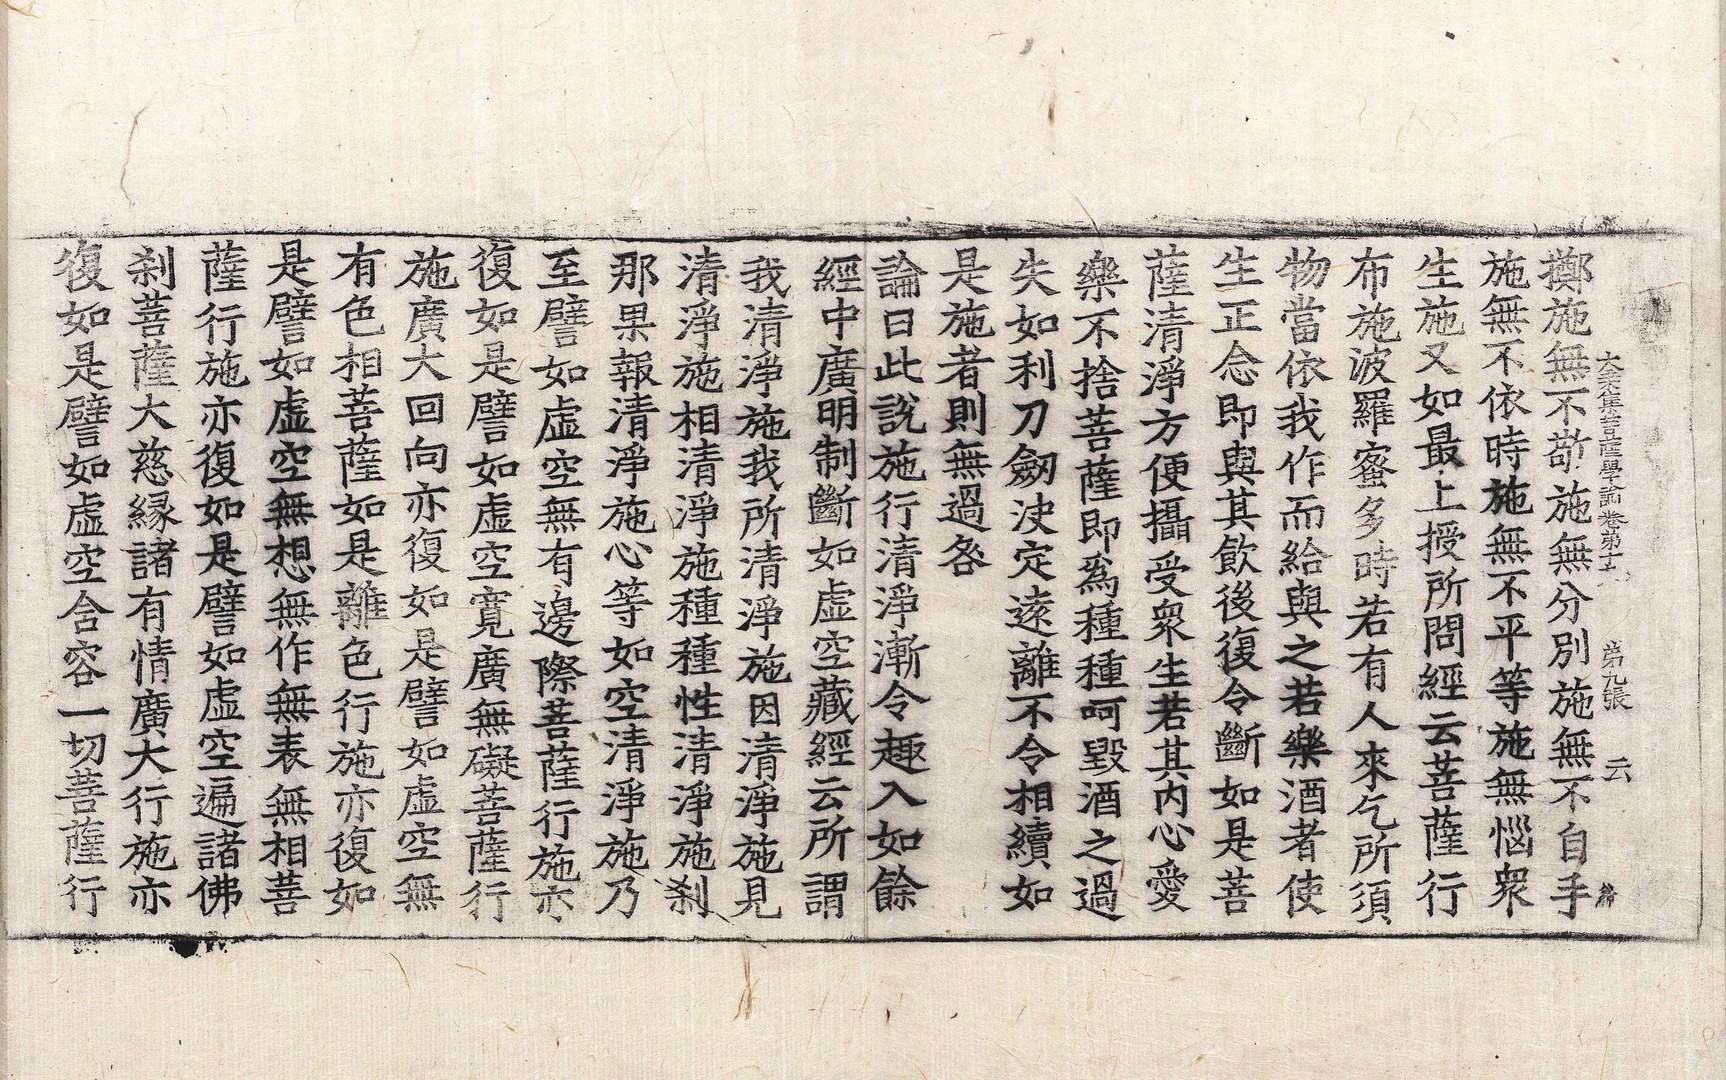 大乘集菩薩學論卷第十八 第九張 云
擲施無不㪣施無分別施無不自手
施無不依時施無不平等施無惱衆
生施又如最上授所問經云菩薩行
布施波羅蜜多時若有人來乞所須
物當依我作而給與之若樂酒者使
生正念即與其飲後復令斷如是菩
薩清淨方便攝受衆生若其内心愛
樂不捨菩薩即爲種種呵毀酒之過
失如利刀劒決定遠離不令相續如
是施者則無過咎
論曰此說施行清淨漸令趣入如餘
經中廣明制斷如虛空藏經云所謂
我清淨施我所清淨施因清淨施見
清淨施相清淨施種種性清淨施剎
那果報清淨施心等如空清淨施乃
至譬如虛空無有邊際菩薩行施亦
復如是譬如虛空寬廣無礙菩薩行
施廣大回向亦復如是譬如虛空無
有色相菩薩如是離色行施亦復如
是譬如虛空無想無作無表無相菩
薩行施亦復如是譬如虛空遍諸佛
剎菩薩大慈緣諸有情廣大行施亦
復如是譬如虛空含容一切菩薩行